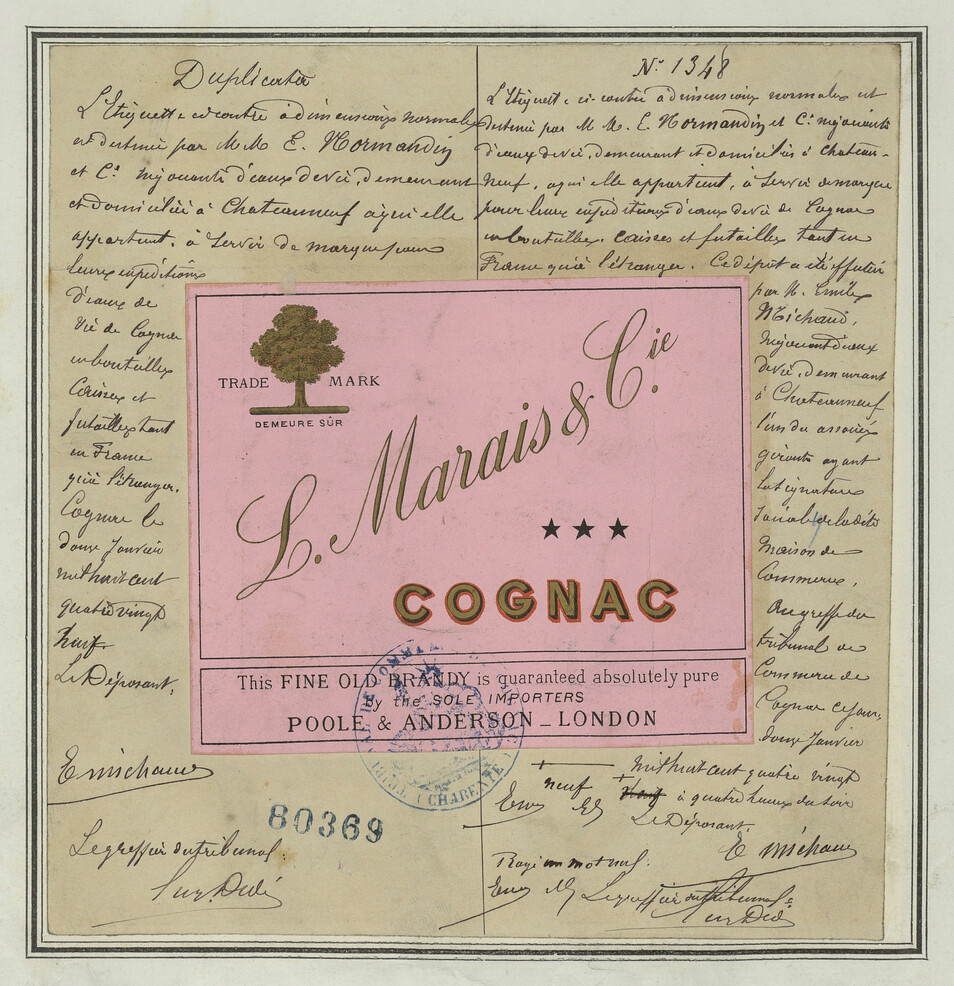 Duplicata
L'Etiquette ci-contre à dimensions normales
est destinée par M M E. Normandin
et Cie négociants d'eaux de vie, demeurant
et domiciliés à Chateauneuf à qui elle
appartient, à servir de marque pour
leurs expéditions
d'eaux de
Vie de Cognac
en bouteilles
Caisses et
futailles tant
en France
qu'à l'étranger.
Cognac le
douze Janvier
mil huit cent
quatre vingt
Neuf.
Le Déposant,
E Michaud
Le greffier du tribunal:
80369
No 1348
L'Etiquette ci-contre à dimensions normales est
destinée par M M. E. Normandin et Cie négociants
d'eaux de vie, demeurant et domiciliés à Chateau-
Neuf, à qui elle appartient, à servir de marque
pour leurs expéditions d'eaux de vie de Cognac
en bouteilles, caisses et futailles tant en
France qu'à l'étranger. Ce dépôt a été effectué
par M. Emile
Michaud,
Négociant d'eaux
de vie, demeurant
à Chateauneuf
l'un des associés
gérants ayant
la signature
sociale de la dite
Maison de
Commerce.
Au greffe du
tribunal de
Commerce de
Cognac ce jour,
douze Janvier
mil huit cent quatre vingt
neuf à quatre heures du soir
Le Déposant.
E Michaud
Rayé un mot nul.
Le greffier du tribunal:
TRADE MARK
DEMEURE SÛR
L. Marais & Cie.
★★★
COGNAC
This FINE OLD BRANDY is guaranteed absolutely pure
by the SOLE IMPORTERS
POOLE & ANDERSON _ LONDON
(CHARENTE)